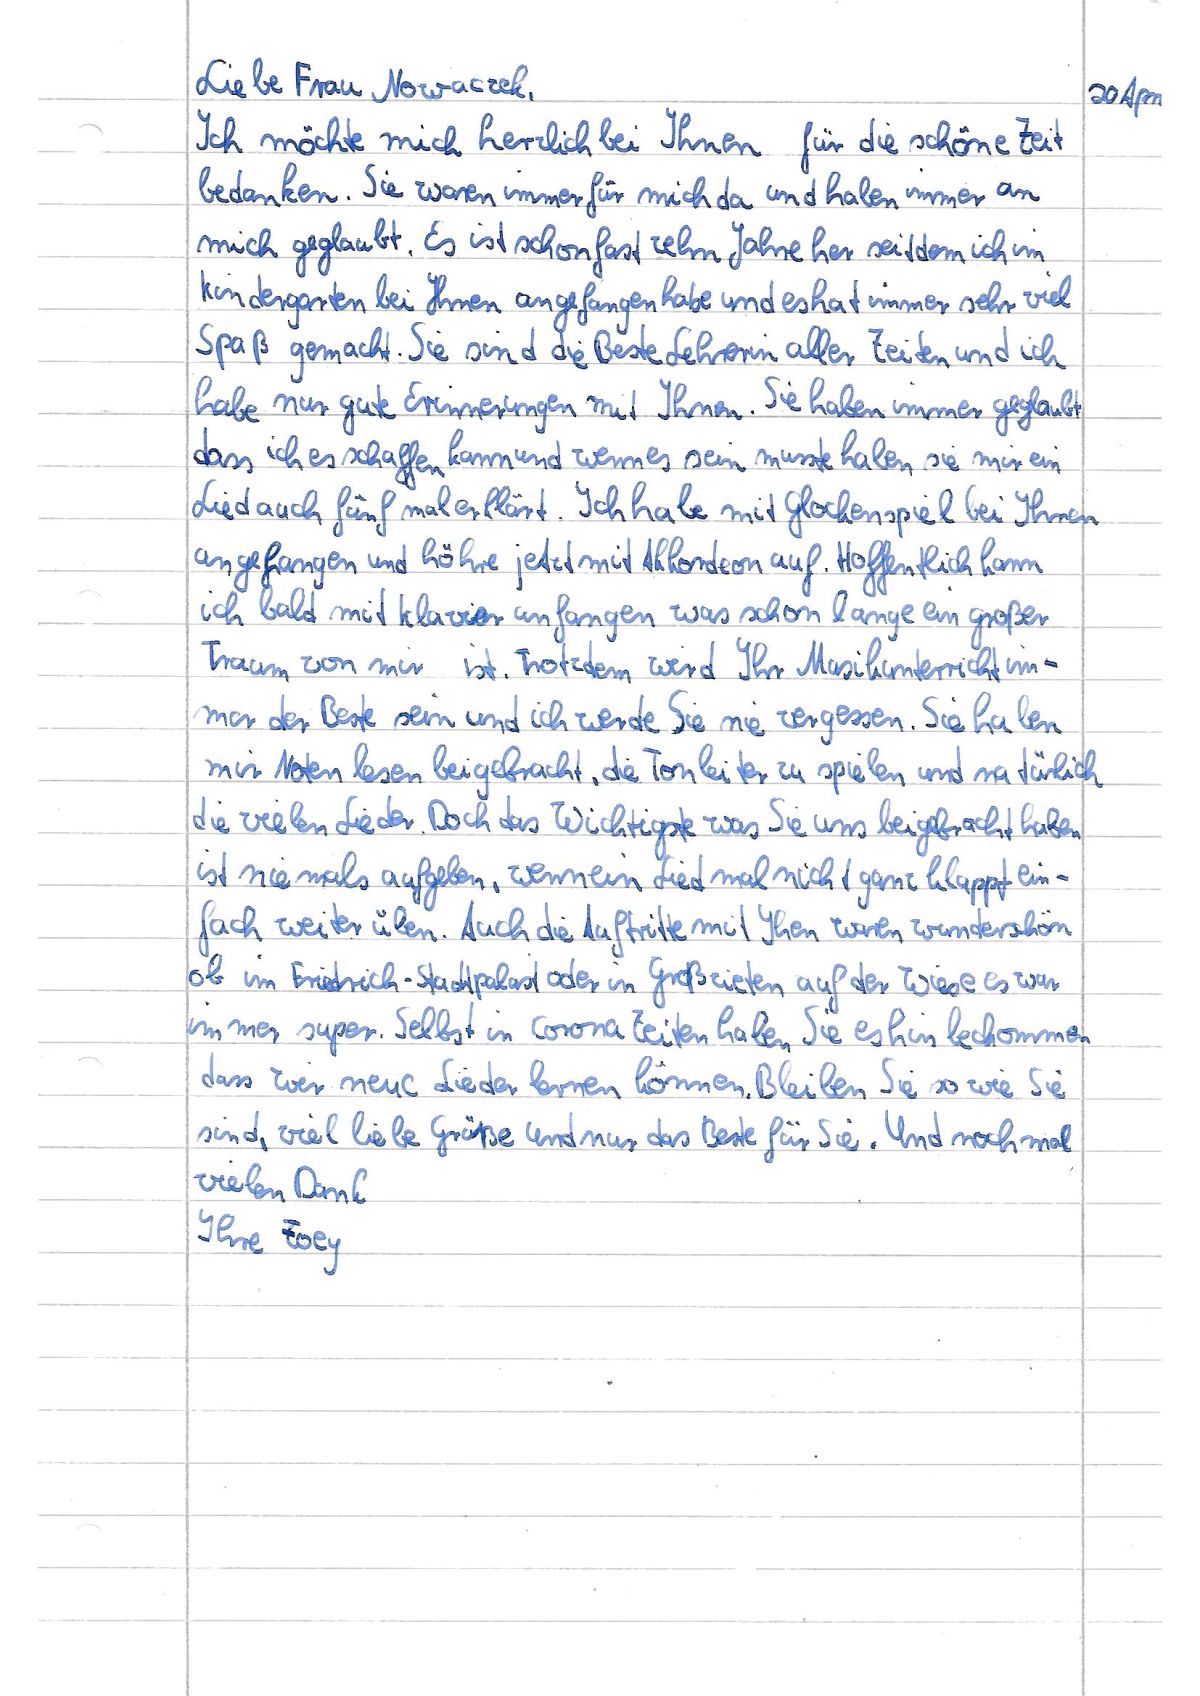 Liebe Frau Nowaczek,
20 Apr
Ich möchte mich herzlich bei Ihnen für die schöne Zeit
bedanken. Sie waren immer für mich da und haben immer an
mich geglaubt. Es ist schon fast zehn Jahre her seitdem ich im
Kindergarten bei Ihnen angefangen habe und es hat immer sehr viel
Spaß gemacht. Sie sind die Beste Lehrerin aller Zeiten und ich
habe nur gute Erinnerungen mit Ihnen. Sie haben immer geglaubt
dass ich es schaffen kann und wenn es sein musste haben sie mir ein
Lied auch fünf mal erklärt. Ich habe mit Glockenspiel bei Ihnen
angefangen und höhre jetzt mit Akkordeon auf. Hoffentlich kann
ich bald mit Klavier anfangen was schon lange ein großer
Traum von mir ist. Trotzdem wird Ihr Musikunterricht im-
mer der Beste sein und ich werde Sie nie vergessen. Sie haben
mir Noten lesen beigebracht, die Tonleiter zu spielen und natürlich
die vielen Lieder. Doch das Wichtigste was Sie uns beigebracht haben
ist niemals aufgeben, wenn ein Lied mal nicht ganz klappt ein-
fach weiter üben. Auch die Auftritte mit Ihen waren wunderschön
ob im Friedrich-Stadtpalast oder in Großzieten auf der Wiese es war
immer super. Selbst in Corona Zeiten haben Sie es hin bekommen
dass wir neue Lieder lernen können. Bleiben Sie so wie Sie
sind, viel liebe Grüße und nur das Beste für Sie. Und noch mal
vielen Dank
Ihre Zoey